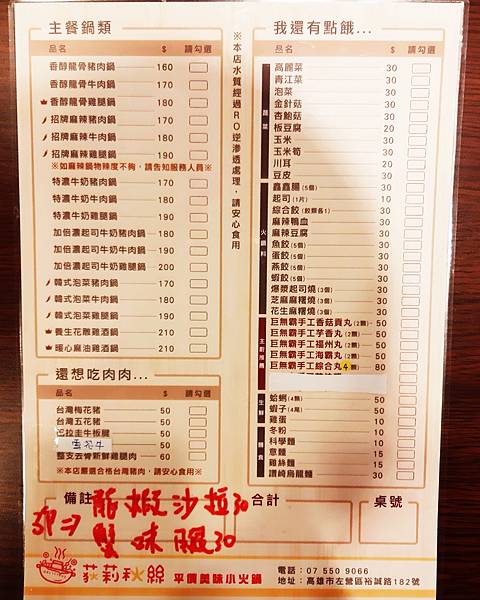 主餐鍋類
品名 $ 請勾選
香醇龍骨豬肉鍋 160
香醇龍骨牛肉鍋 170
香醇龍骨雞腿鍋 180
招牌麻辣豬肉鍋 170
招牌麻辣牛肉鍋 180
招牌麻辣雞腿鍋 190
※如麻辣鍋物辣度不夠，請告知服務人員※
特濃牛奶豬肉鍋 170
特濃牛奶牛肉鍋 180
特濃牛奶雞腿鍋 190
加倍濃起司牛奶豬肉鍋 180
加倍濃起司牛奶牛肉鍋 190
加倍濃起司牛奶雞腿鍋 200
韓式泡菜豬肉鍋 170
韓式泡菜牛肉鍋 180
韓式泡菜雞腿鍋 190
養生花雕雞酒鍋 210
暖心麻油雞酒鍋 210
還想吃肉肉...
品名 $ 請勾選
台灣梅花豬 50
台灣五花豬 50
巴拉圭牛板腱 50
雪花牛 50
整支去骨新鮮雞腿肉 60
※本店嚴選合格台灣豬肉，請安心食用
※本店水質經過RO逆滲透處理，請安心食用
我還有點餓...
品名 $ 請勾選
蔬菜
高麗菜 30
青江菜 30
泡菜 30
金針菇 30
杏鮑菇 30
板豆腐 20
玉米 30
玉米筍 30
川耳 20
豆皮 30
火鍋料
鑫鑫腸(5個) 30
起司(1片) 10
綜合餃(餃類各1) 30
麻辣鴨血 30
麻辣豆腐 30
魚餃(5個) 30
蛋餃(5個) 30
燕餃(5個) 30
蝦餃(5個) 30
爆漿起司燒(3個) 30
芝麻麻糬燒(3個) 30
花生麻糬燒(3個) 30
主廚推薦
巨無霸手工香菇貢丸(2顆) 50
巨無霸手工芋香丸(2顆) 50
巨無霸手工福州丸(2顆) 50
巨無霸手工海霸丸(2顆) 50
巨無霸手工綜合丸(4顆) 80
生鮮
蛤蜊(4顆) 50
蝦子(4尾) 50
雞蛋 10
麵食
冬粉 10
科學麵 10
意麵 15
雞絲麵 15
讚岐烏龍麵 30
備註 合計 桌號
卯⇒龍蝦沙拉30
蟹味腿30
荻莉秋絲 平價美味小火鍋
電話：07 550 9066
地址：高雄市左營區裕誠路182號